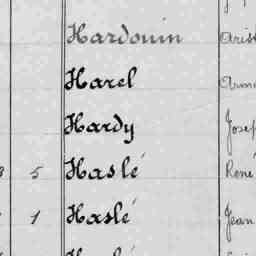 Hardouin
Harel
Hardy Josep
5 Haslé René
1 Haslé Jean